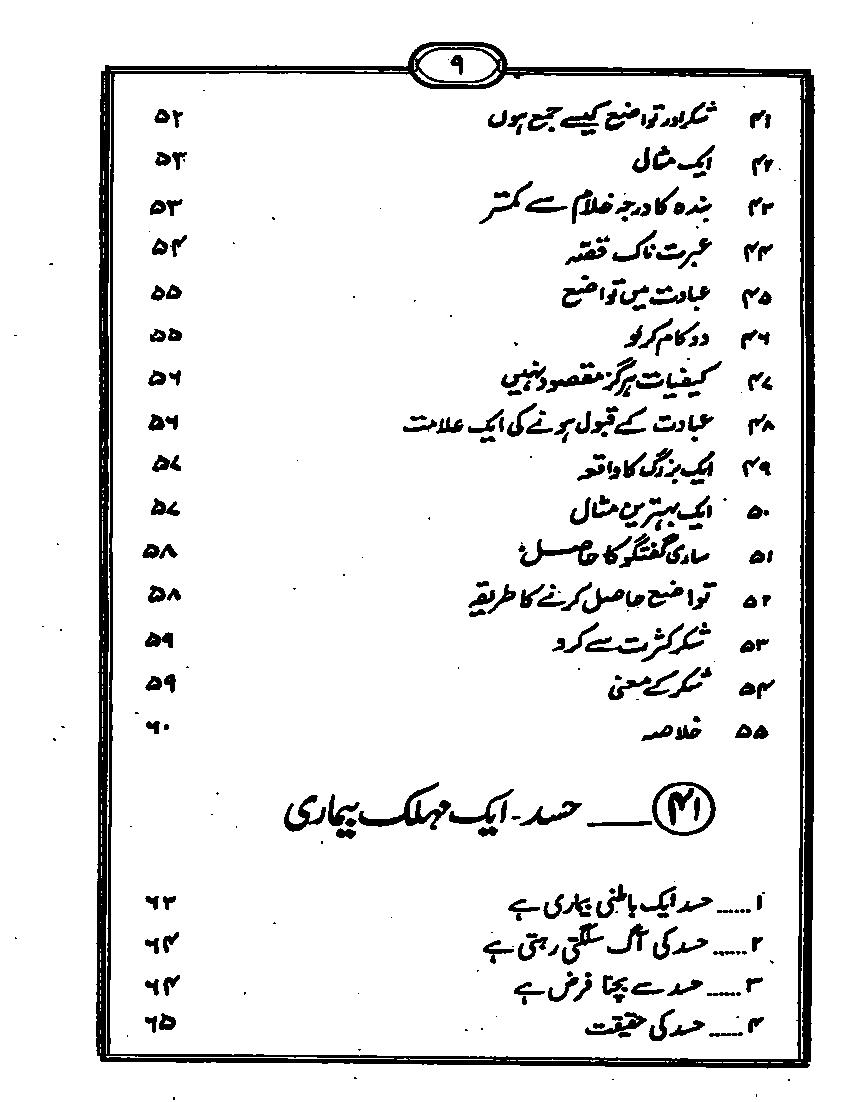 ۹
۴۱ شکر اور تواضع کیسے جمع ہوں ۵۲
۴۲ ایک مثال ۵۳
۴۳ بندہ کا درجہ غلام سے کمتر ۵۳
۴۴ عبرت ناک قصّہ ۵۴
۴۵ عبادت میں تواضع ۵۵
۴۶ دو کام کر لو ۵۵
۴۷ کیفیات ہرگز مقصود نہیں ۵۶
۴۸ عبادت کے قبول ہونے کی ایک علامت ۵۶
۴۹ ایک بزرگ کا واقعہ ۵۷
۵۰ ایک بہترین مثال ۵۷
۵۱ ساری گفتگو کا حاصل ۵۸
۵۲ تواضع حاصل کرنے کا طریقہ ۵۸
۵۳ شکر کثرت سے کرو ۵۹
۵۴ شکر کے معنی ۵۹
۵۵ خلاصہ ۶۰
۴۱ ــــ حسد - ایک مہلک بیماری
۱ ...... حسد ایک باطنی بیماری ہے ۶۳
۲ ...... حسد کی آگ سلگتی رہتی ہے ۶۴
۳ ...... حسد سے بچنا فرض ہے ۶۴
۴ ...... حسد کی حقیقت ۶۵